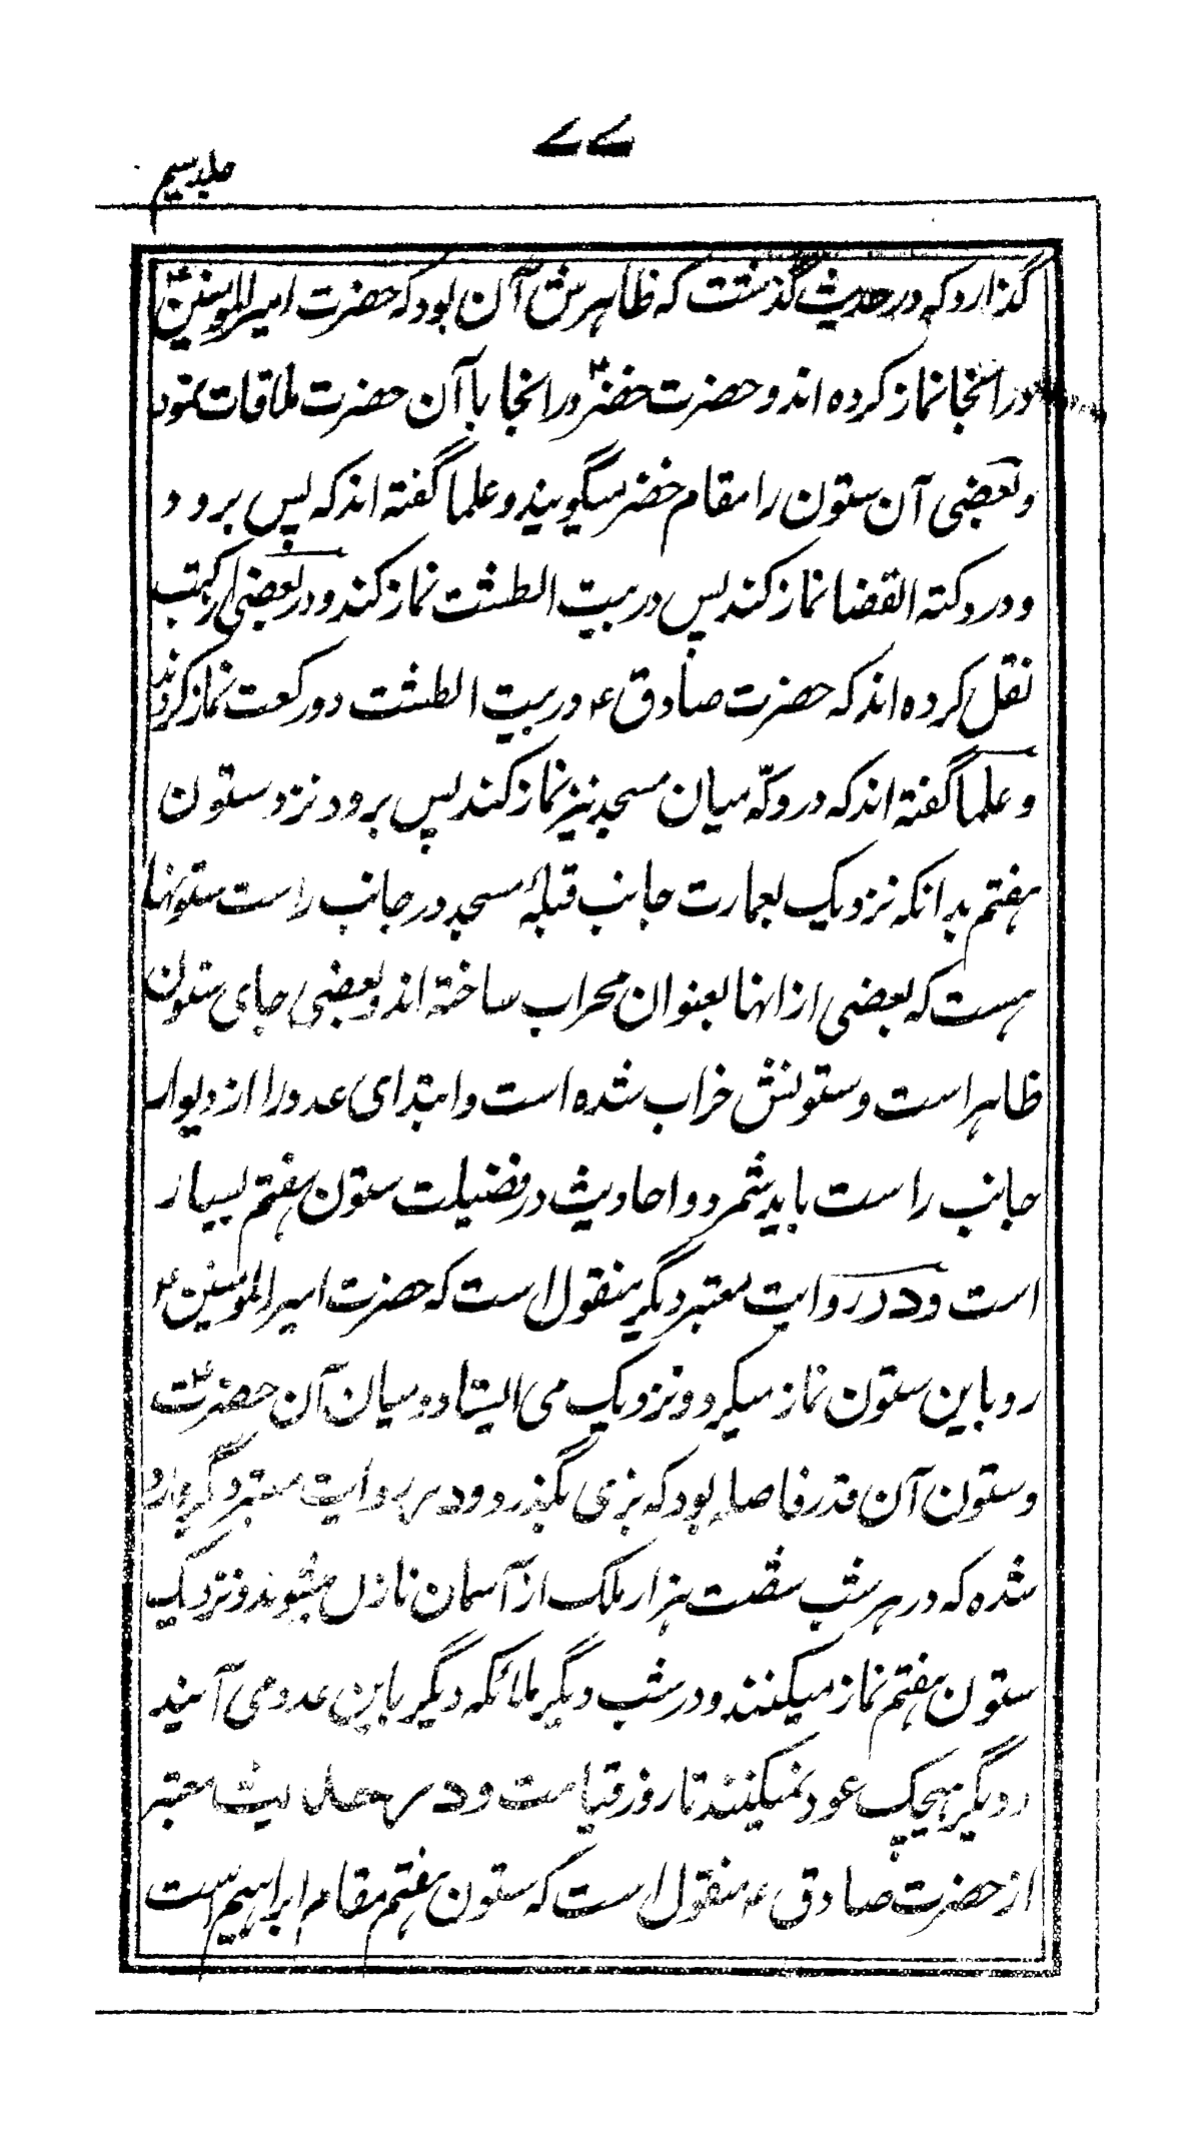 ۷۷
جلد سیم
گذارد که در حدیث گذشت که ظاهرش آن بود که حضرت امیر المومنین ع
در انجا نماز کرده اند و حضرت خضر ع در انجا با آن حضرت ملاقات نمود
و بعضی آن ستون را مقام خضر میگویند و علما گفته اند که پس برود و
و در دکته القضا نماز کند پس در بیت الطشت نماز کند و در بعضی از کتب
نقل کرده اند که حضرت صادق ع در بیت الطشت دو رکعت نماز کردند
و علما گفته اند که در دکّه میان مسجد نیز نماز کند پس برود نزد ستون
هفتم بدانکه نزدیک بعمارت جانب قبلهٔ مسجد در جانب راست ستونها
هست که بعضی از انها بعنوان محراب ساخته اند و بعضی جای ستون
ظاهر است و ستونش خراب شده است و ابتدای عدد را از دیوار
جانب راست باید شمرد و احادیث در فضیلت ستون هفتم بسیار
است و در روایت معتبر دیگر منقول است که حضرت امیر المومنین ع
رو باین ستون نماز میکرد و نزدیک می ایستاد و میان آن حضرت ع
و ستون آن قدر فاصله بود که بزی بگذرد و در روایت معتبر دیگر وارد
شده که در هر شب شصت هزار ملک از آسمان نازل میشوند و نزدیک
ستون هفتم نماز میکنند و در شب دیگر ملائکه دیگر باین عدد می آیند
و دیگر هیچیک عود نمیکنند تا روز قیامت و در حدیث معتبر
از حضرت صادق ع منقول است که ستون هفتم مقام ابراهیم است